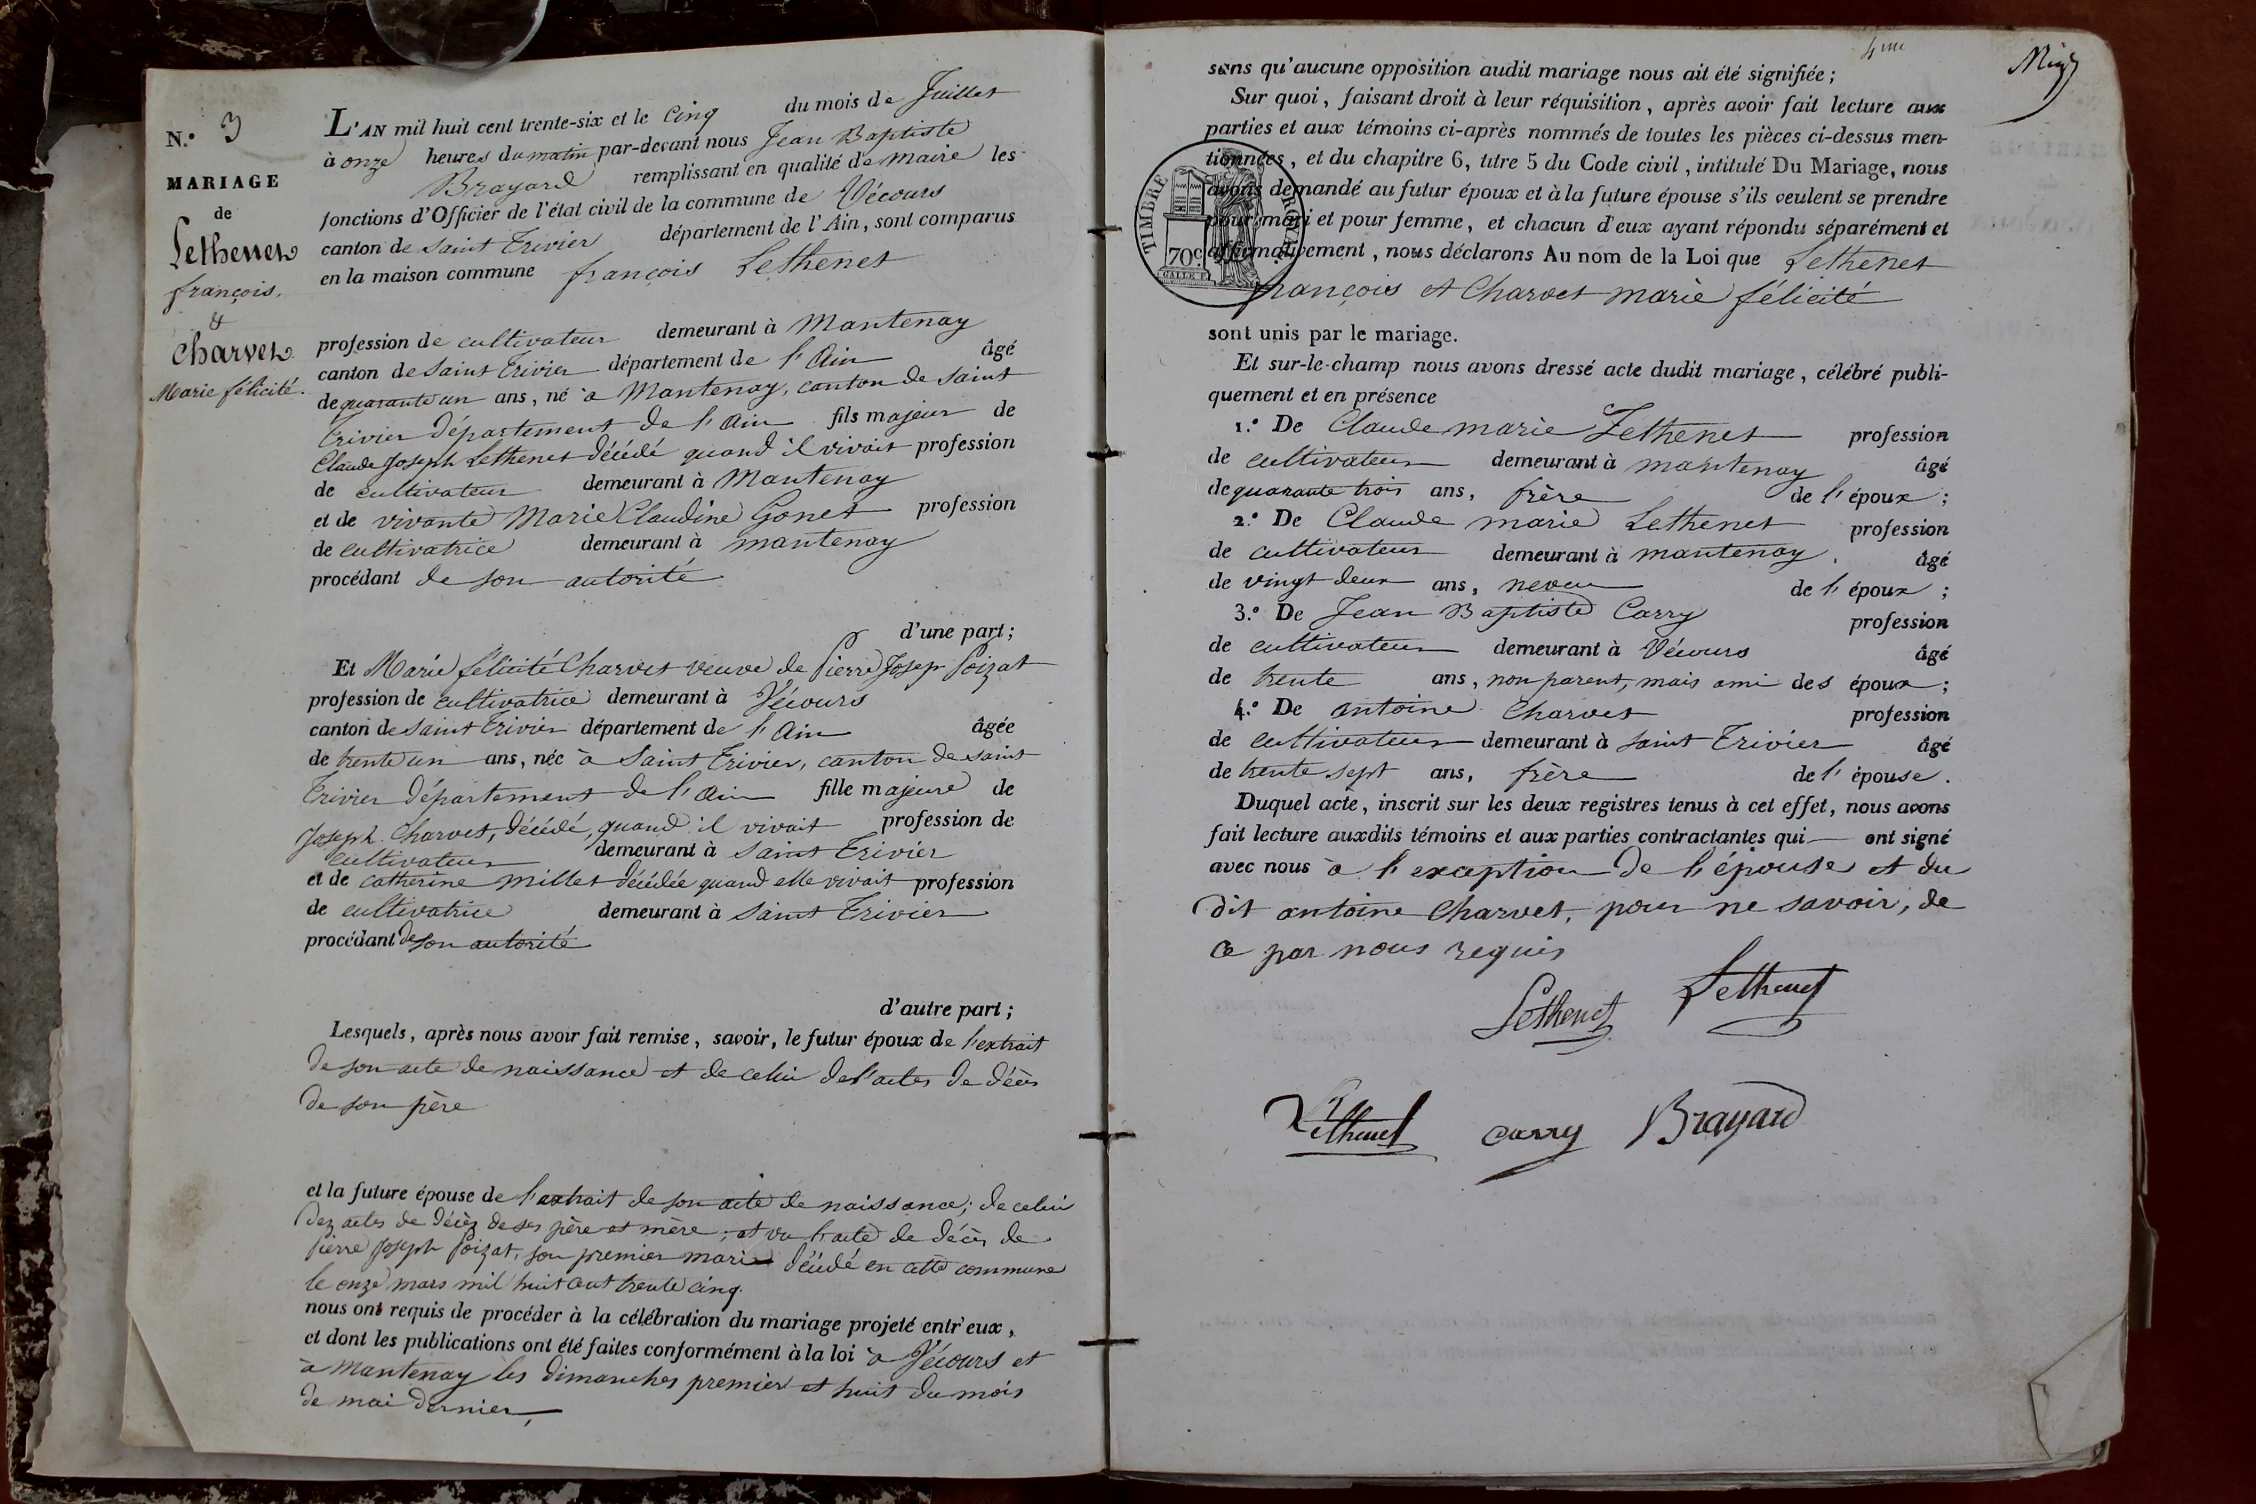 N.º 3
MARIAGE
de
Lethenet
françois,
&
Charvet
Marie félicité.
L'AN mil huit cent trente-six et le Cinq du mois de Juillet
à onze heures du matin par-devant nous Jean Baptiste
Brayard remplissant en qualité de maire les
fonctions d'Officier de l'état civil de la commune de Vécours
canton de Saint Trivier département de l'Ain, sont comparus
en la maison commune françois Lethenet
profession de cultivateur demeurant à Mantenay
canton de Saint Trivier département de l'Ain âgé
de quarante un ans, né à Mantenay, canton de Saint
Trivier département de l'Ain fils majeur de
Claude Joseph Lethenet décédé quand il vivait profession
de cultivateur demeurant à Mantenay
et de vivante Marie Claudine Gonet profession
de cultivatrice demeurant à mantenay
procédant de son autorité
d'une part;
Et Marie félicité Charvet veuve de Pierre Josep Poizat
profession de cultivatrice demeurant à Vécours
canton de Saint Trivier département de l'Ain âgée
de trente un ans, née à Saint Trivier, canton de Saint
Trivier département de l'Ain fille majeure de
Joseph Charvet, décédé, quand il vivait profession de
cultivateur demeurant à Saint Trivier
et de catherine millet décédée quand elle vivait profession
de cultivatrice demeurant à Saint Trivier
procédant de son autorité
d'autre part;
Lesquels, après nous avoir fait remise, savoir, le futur époux de l'extrait
de son acte de naissance et de celui de l'actes de décès
de son père
et la future épouse de l'extrait de son acte de naissance; de celui
dez actes de décès de ses père et mère; et vu l'acte de décès de
Pierre Joseph Poizat, son premier mari décédé en cette commune
le onze mars mil huit cent trente cinq.
nous ont requis de procéder à la célébration du mariage projeté entr'eux,
et dont les publications ont été faites conformément à la loi à Vécours et
à Mantenay les dimanches premier et huit du mois
de mai dernier,
4me
sans qu'aucune opposition audit mariage nous ait été signifiée;
Sur quoi, faisant droit à leur réquisition, après avoir fait lecture aux
parties et aux témoins ci-après nommés de toutes les pièces ci-dessus men-
tionnées, et du chapitre 6, titre 5 du Code civil, intitulé Du Mariage, nous
avons demandé au futur époux et à la future épouse s'ils veulent se prendre
pour mari et pour femme, et chacun d'eux ayant répondu séparément et
affirmativement, nous déclarons Au nom de la Loi que Lethenet
françois et Charvet marie félicité
TIMBRE ROYAL
70c
sont unis par le mariage.
Et sur-le-champ nous avons dressé acte dudit mariage, célébré publi-
quement et en présence
1.º De Claude marie Lethenet profession
de cultivateur demeurant à mantenay âgé
de quarante trois ans, frère de l'époux;
2.º De Claude marie Lethenet profession
de cultivateur demeurant à mantenay. âgé
de vingt deux ans, neveu de l'époux;
3.º De Jean Baptiste Carry profession
de cultivateur demeurant à Vécours âgé
de trente ans, non parent, mais ami des époux;
4.º De antoine Charvet profession
de cultivateur demeurant à saint Trivier âgé
de trente sept ans, frère de l'épouse.
Duquel acte, inscrit sur les deux registres tenus à cet effet, nous avons
fait lecture auxdits témoins et aux parties contractantes qui ont signé
avec nous à l'exception de l'épouse et du
dit antoine Charvet, pour ne savoir, de
ce par nous requis
Lethenet Lethenet
Lethenet carry Brayard